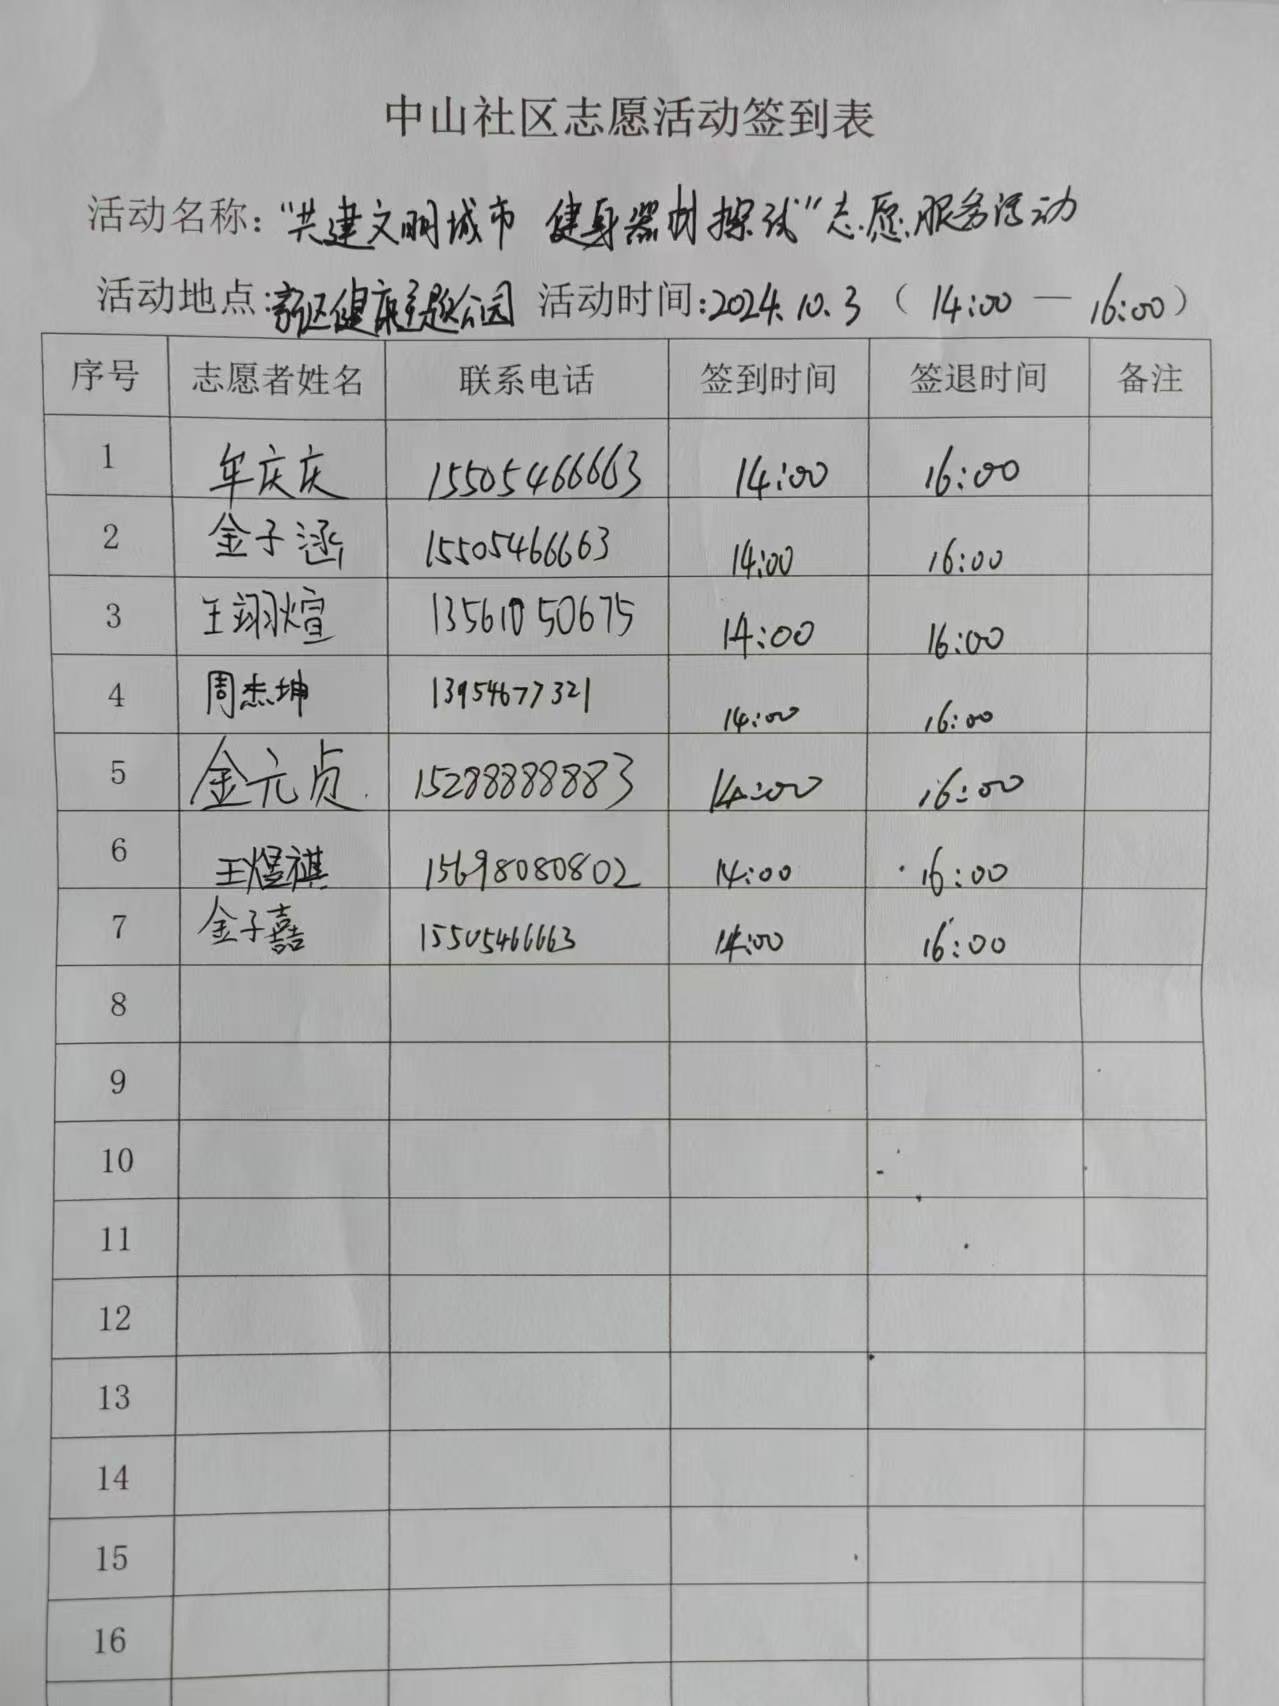 中山社区志愿活动签到表
活动名称:“共建文明城市 健身器材擦试”志愿服务活动
活动地点:新区健康主题公园 活动时间:2024.10.3（14:00—16:00）
序号 志愿者姓名 联系电话 签到时间 签退时间 备注
1 牟庆庆 15505466663 14:00 16:00
2 金子涵 15505466663 14:00 16:00
3 王翊煊 13561050675 14:00 16:00
4 周杰坤 13954677321 14:00 16:00
5 金元贞 15288888883 14:00 16:00
6 王煜祺 15698080802 14:00 16:00
7 金子嘉 15505466663 14:00 16:00
8
9
10
11
12
13
14
15
16